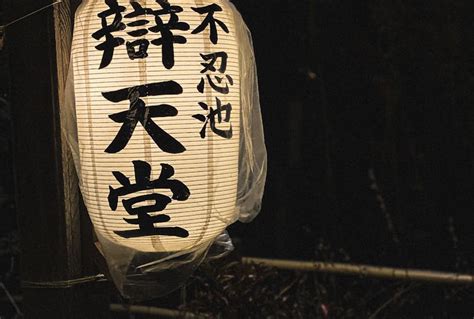 不忍池
辯天堂